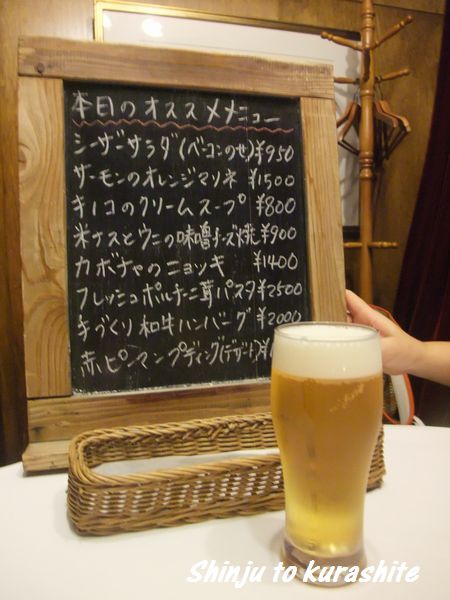 本日のオススメメニュー
シーザーサラダ(ベーコンのせ) ¥950
サーモンのオレンジマリネ ¥1500
キノコのクリームスープ ¥800
米ナスとウニの味噌チーズ焼 ¥900
カボチャのニョッキ ¥1400
フレッシュポルチーニ茸パスタ ¥2500
手づくり和牛ハンバーグ ¥2000
赤ピーマンプディング(デザート)
Shinju to kurashite